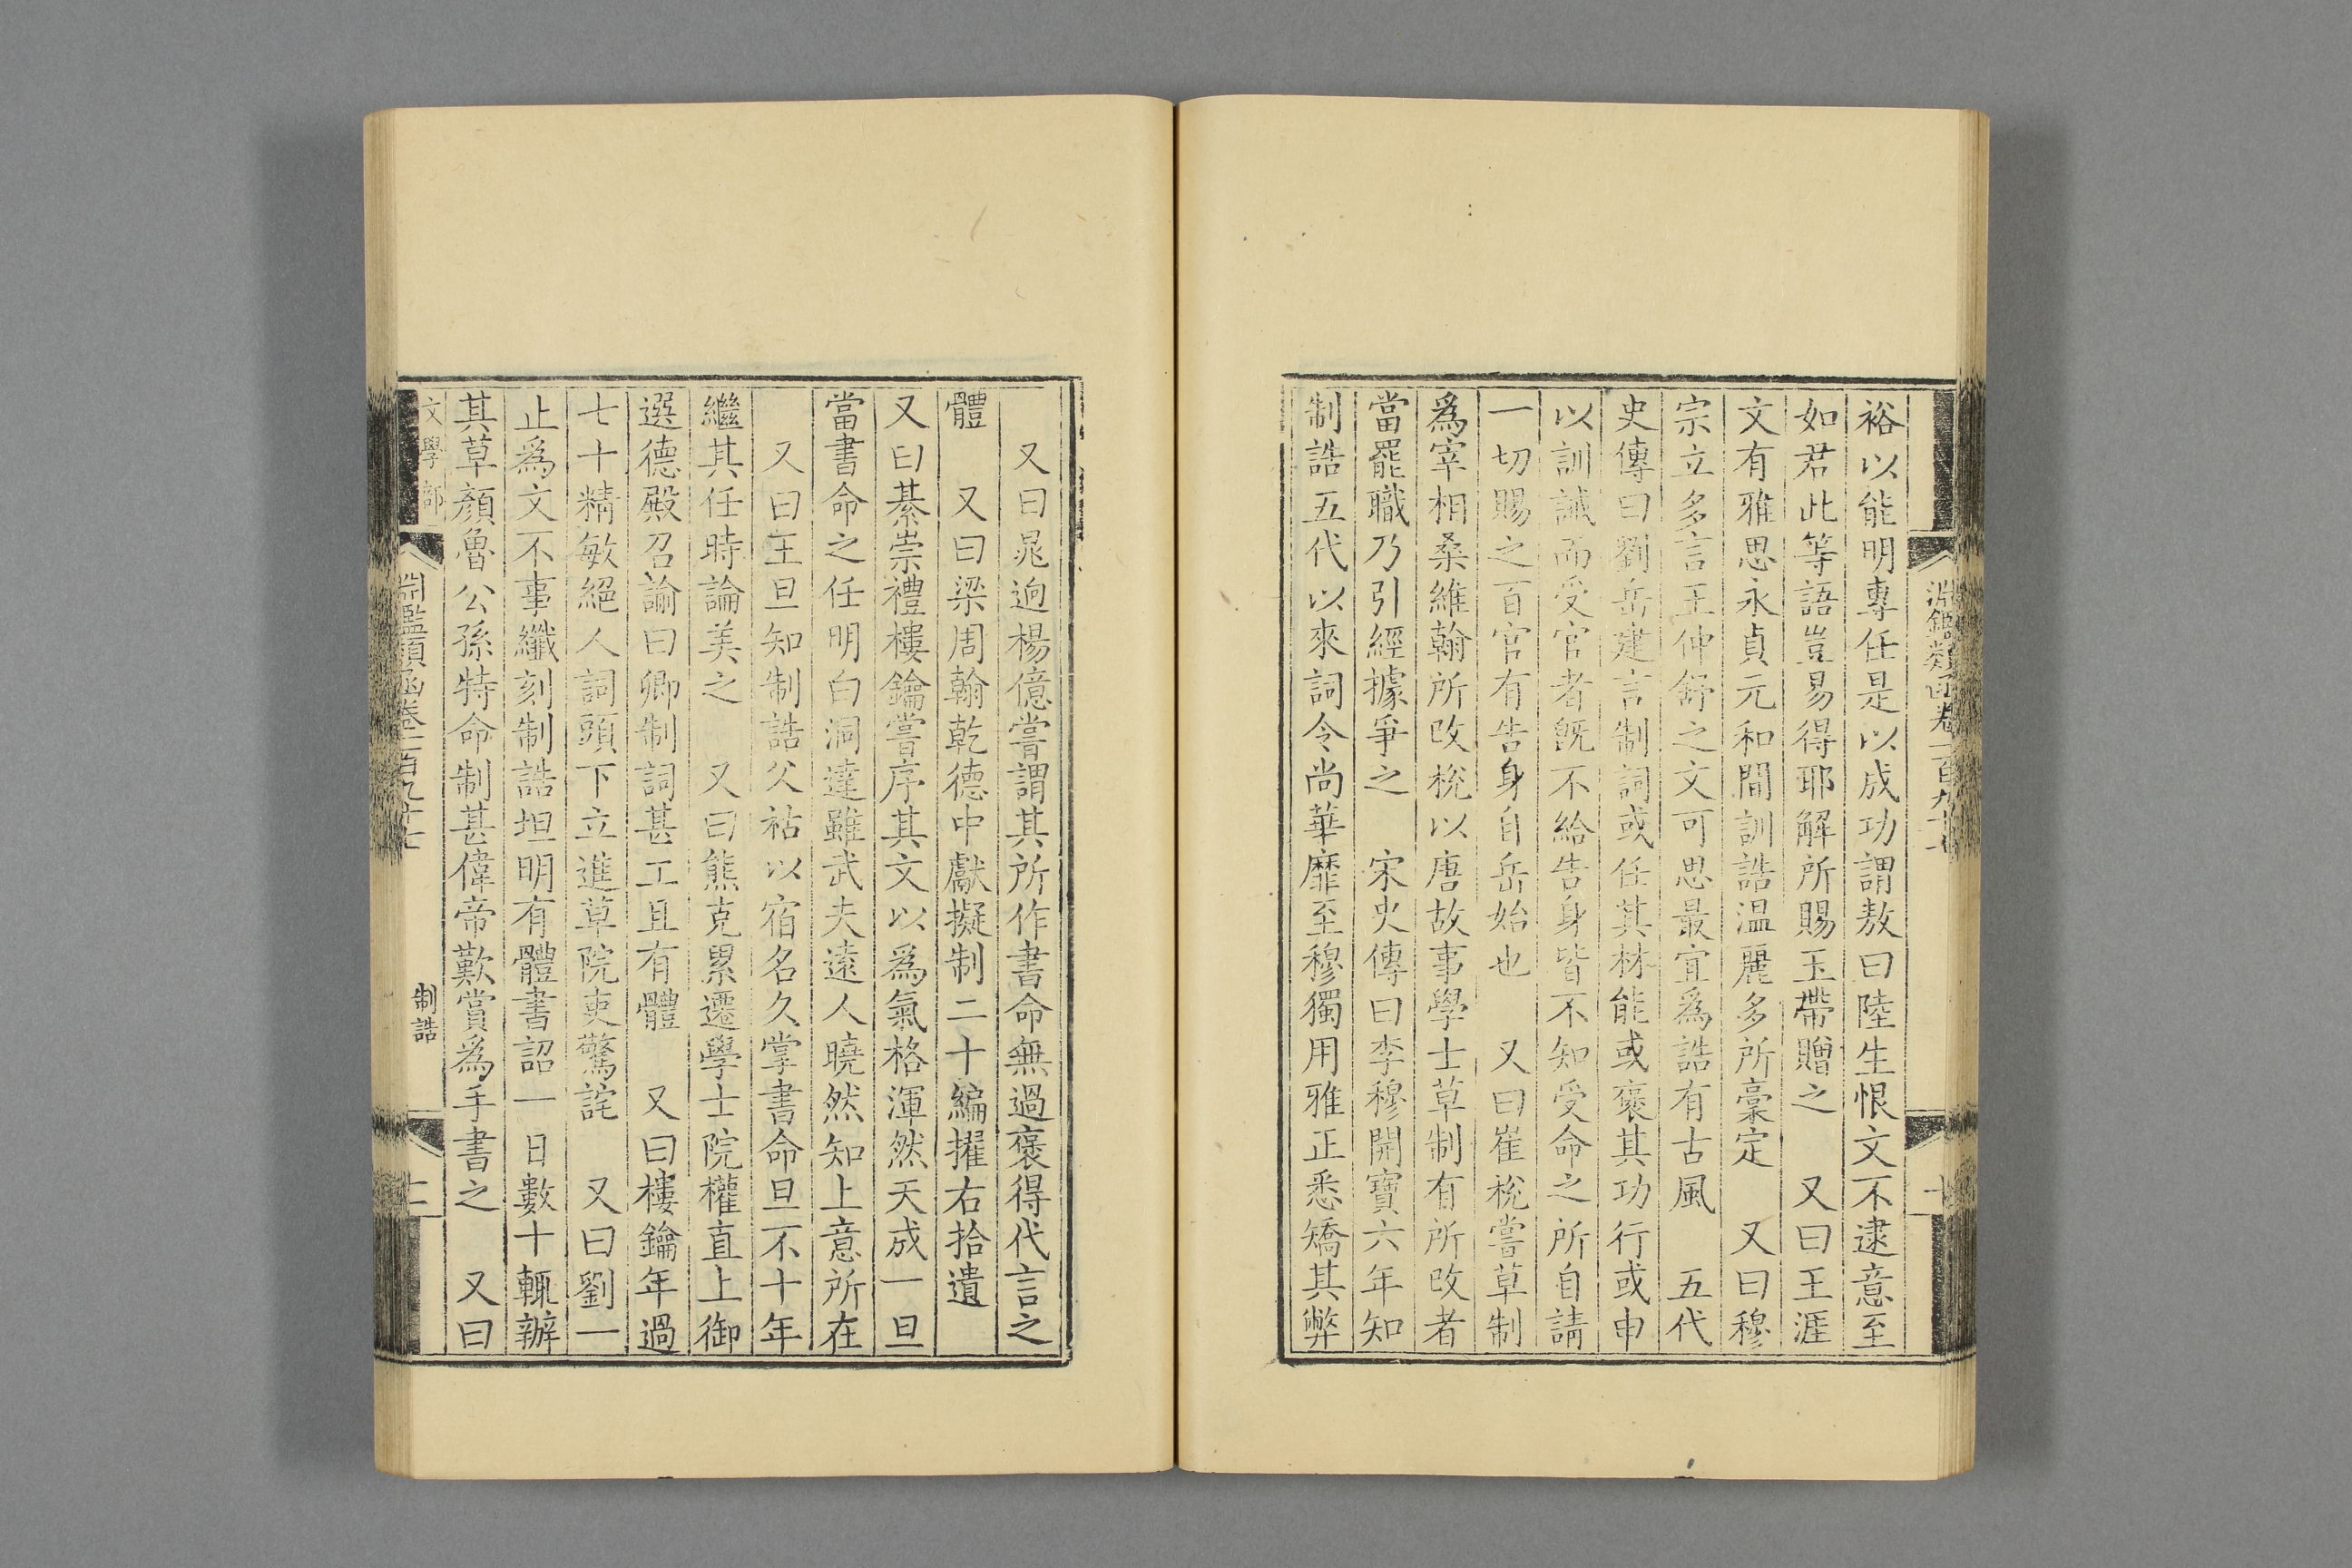 裕以能明專任是以成功謂敖曰陸生恨文不逮意至
如君此等語豈易得耶解所賜玉帶贈之　又曰王涯
文有雅思永貞元和間訓誥溫麗多所藁定　又曰穆
宗立多言王仲舒之文可思最宜爲誥有古風　五代
史傳曰劉岳建言制詞或任其材能或褒其功行或申
以訓誡而受官者旣不給告身皆不知受命之所自請
一切賜之百官有告身自岳始也　又曰崔梲嘗草制
爲宰相桑維翰所改梲以唐故事學士草制有所改者
當罷職乃引經據爭之　宋史傳曰李穆開寶六年知
制誥五代以來詞令尚華靡至穆獨用雅正悉矯其弊
又曰晁逈楊億嘗謂其所作書命無過褒得代言之
體　又曰梁周翰乾德中獻擬制二十編擢右拾遺
又曰綦崇禮樓鑰嘗序其文以爲氣格渾然天成一旦
當書命之任明白洞達雖武夫遠人曉然知上意所在
又曰王旦知制誥父祜以宿名久掌書命旦不十年
繼其任時論美之　又曰熊克累遷學士院權直上御
選德殿召諭曰卿制詞甚工且有體　又曰樓鑰年過
七十精敏絕人詞頭下立進草院吏驚詫　又曰劉一
止爲文不事纖刻制誥坦明有體書詔一日數十輒辦
其草顏魯公孫特命制甚偉帝歎賞爲手書之　又曰
文學部
淵鑑類函卷一百九十七
制誥